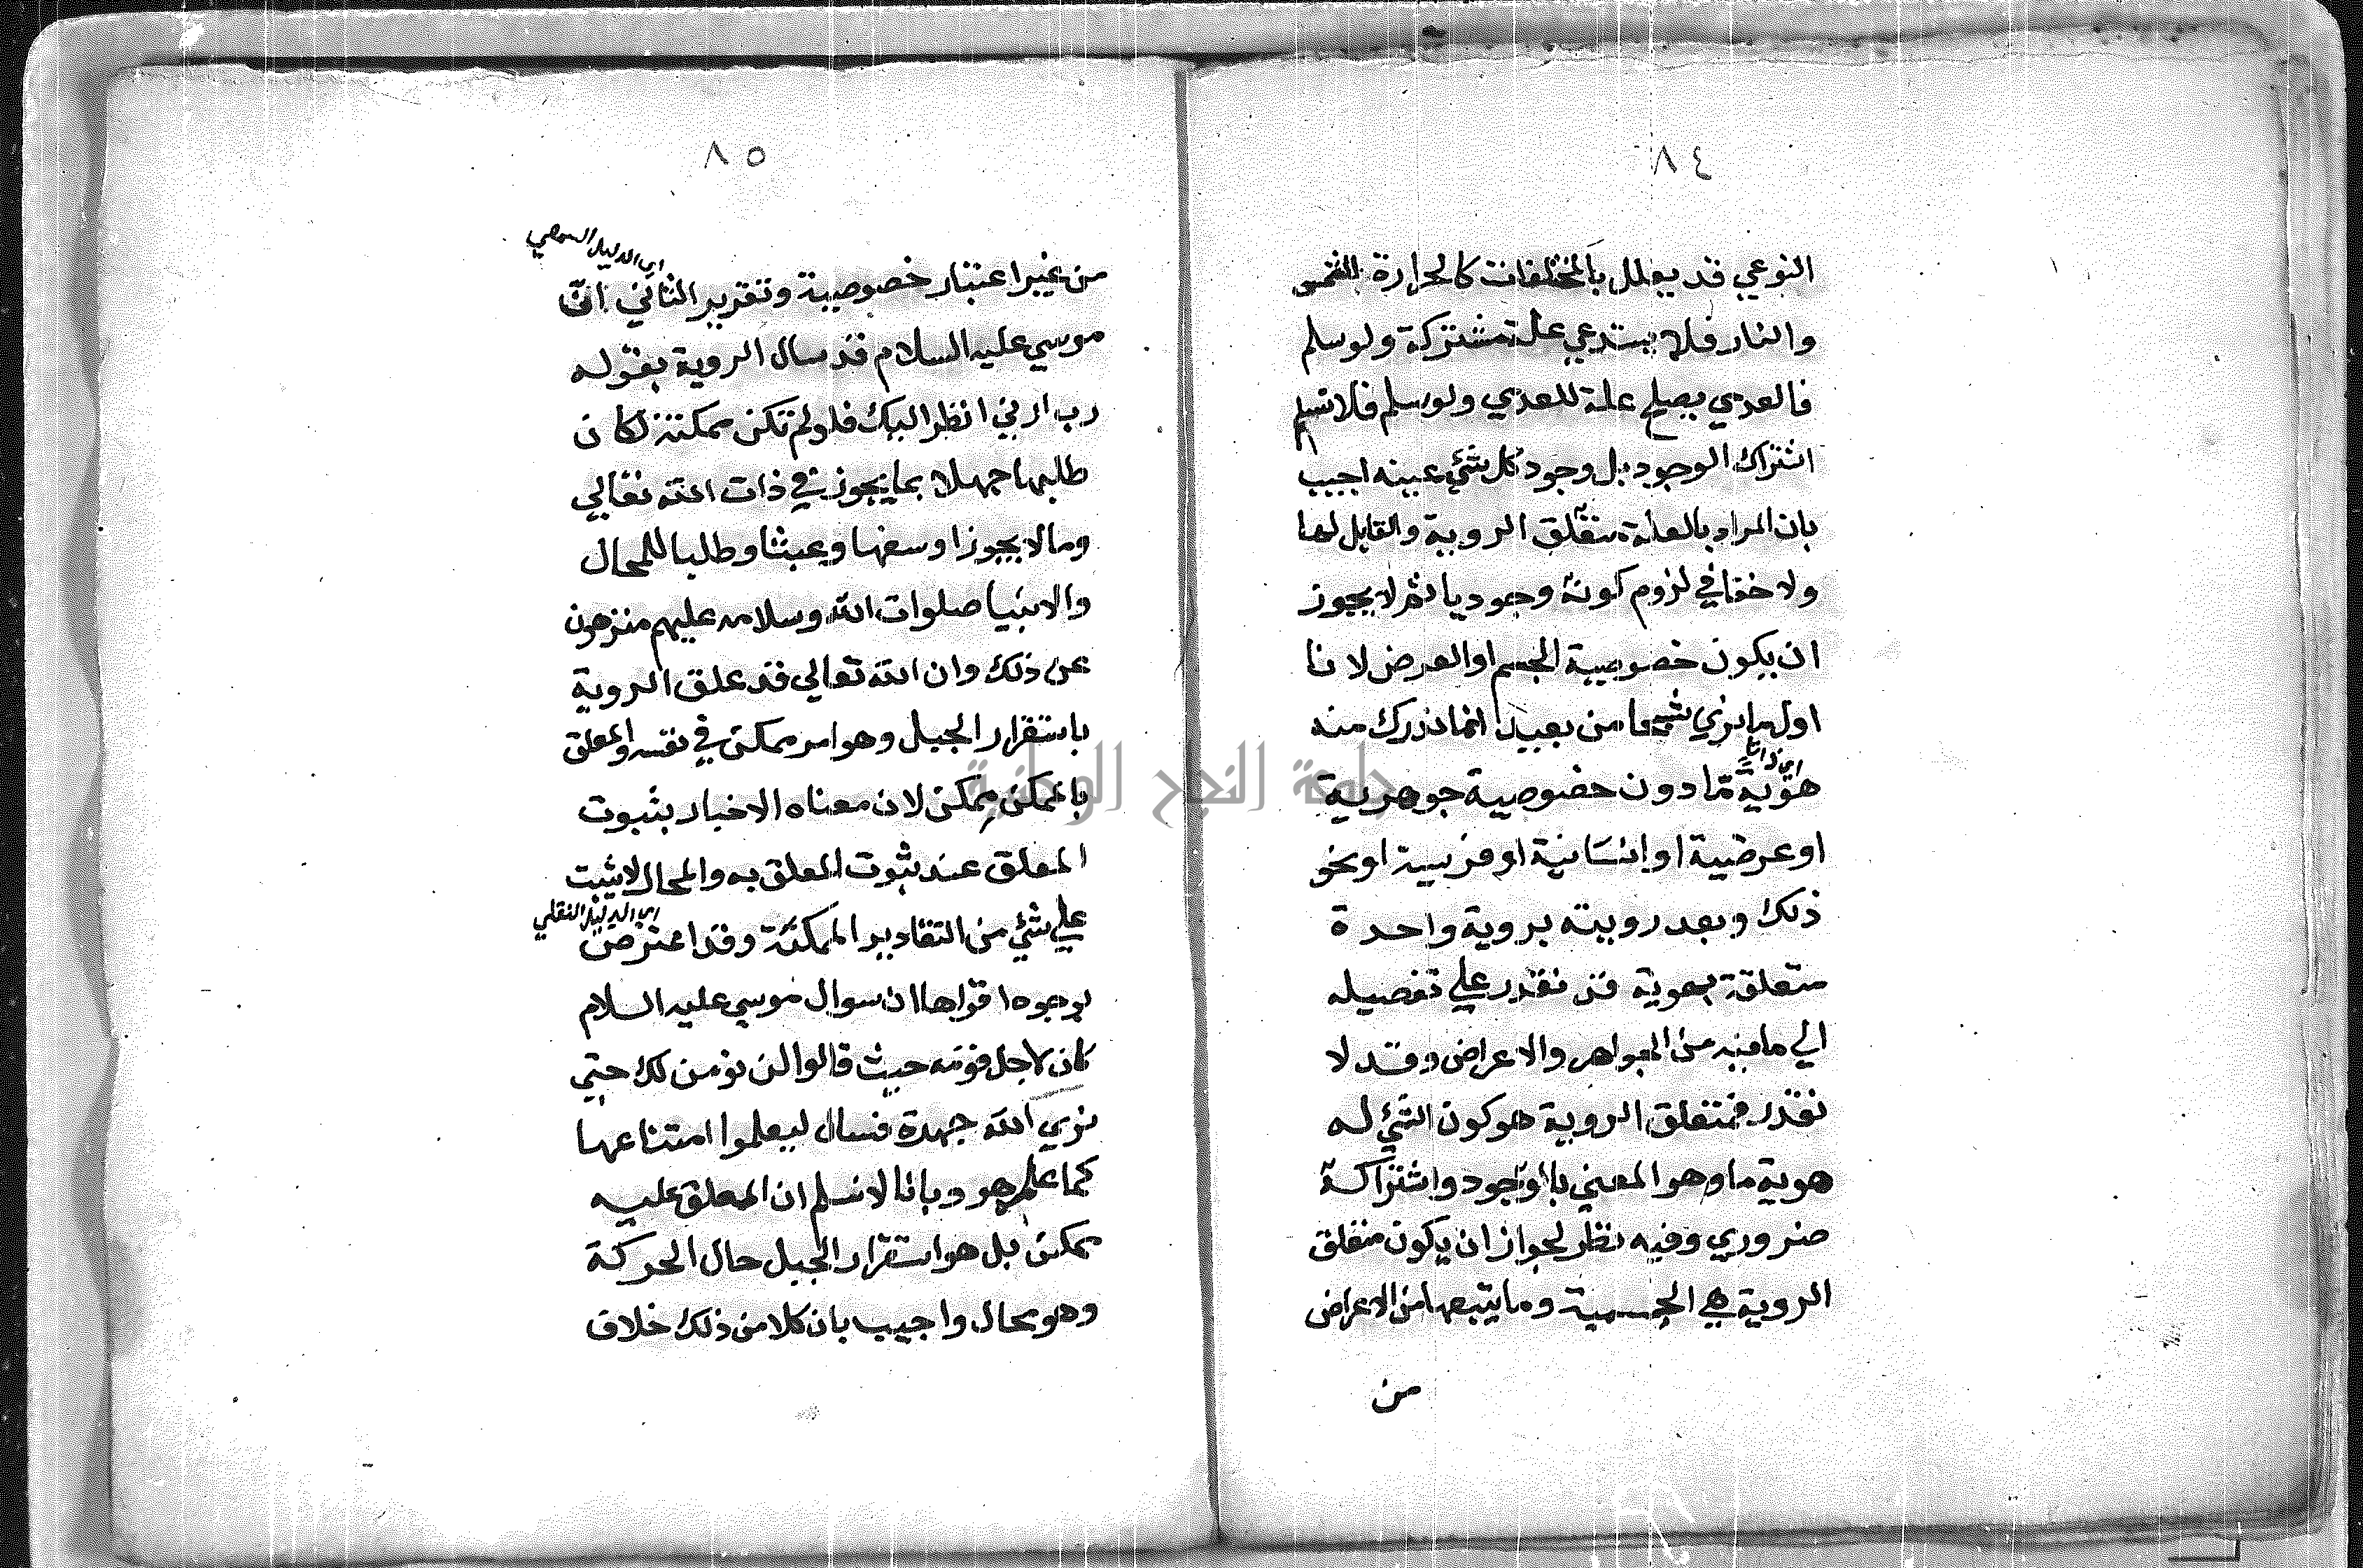 ٨٤
النوعي قد يعلل بالمختلفات كالحرارة بالشمس
والنار فلا يستدعي علة مشتركة ولو سلم
فالعدمي يصلح علة للعدمي ولو سلم فلا نسلم
اشتراك الوجود بل وجود كل شئ عينه اجيب
بان المراد بالعلة متعلق الروية والقابل لها
ولا خفا في لزوم كونه وجوديا ثم لا يجوز
ان يكون خصوصية الجسم او العرض لانا
اول ما نري شبحا من بعيد انما ندرك منه
اي ذاتا
هوية ما دون خصوصية جوهرية
او عرضية او انسانية او فرسية او نحو
ذلك وبعد رويته بروية واحدة
متعلقة بهوية قد نقدر علي تفصيله
الي ما فيه من الجواهر والاعراض وقد لا
نقدر فمتعلق الروية هو كون الشئ له
هوية ما وهو المعني بالوجود واشتراكه
ضروري وفيه نظر لجواز ان يكون متعلق
الروية هي الجسمية وما يتبعها من الاعراض
من
٨٥
اي الدليل السمعي
من غير اعتبار خصوصية وتقرير الثاني ان
موسي عليه السلام قد سال الروية بقوله
رب ارني انظر اليك فلو لم تكن ممكنة لكان
طلبها جهلا بما يجوز في ذات الله تعالي
وما لا يجوز او سفها وعبثا وطلبا للمحال
والانبيا صلوات الله وسلامه عليهم منزهون
عن ذلك وان الله تعالي قد علق الروية
باستقرار الجبل وهو امر ممكن في نفسه والمعلق
بالممكن ممكن لان معناه الاخبار بثبوت
المعلق عند ثبوت المعلق به والمحال لا يثبت
اي الدليل النقلي
علي شئ من التقادير الممكنة وقد اعترض
بوجوه اقواها ان سوال موسي عليه السلام
كان لاجل قومه حيث قالوا لن نومن لك حتي
نري الله جهرة فسال ليعلموا امتناعها
كما علم هو وبانا لا نسلم ان المعلق عليه
ممكن بل هو استقرار الجبل حال الحركة
وهو محال واجيب بان كلا من ذلك خلاف
جامعة النجاح الوطنية